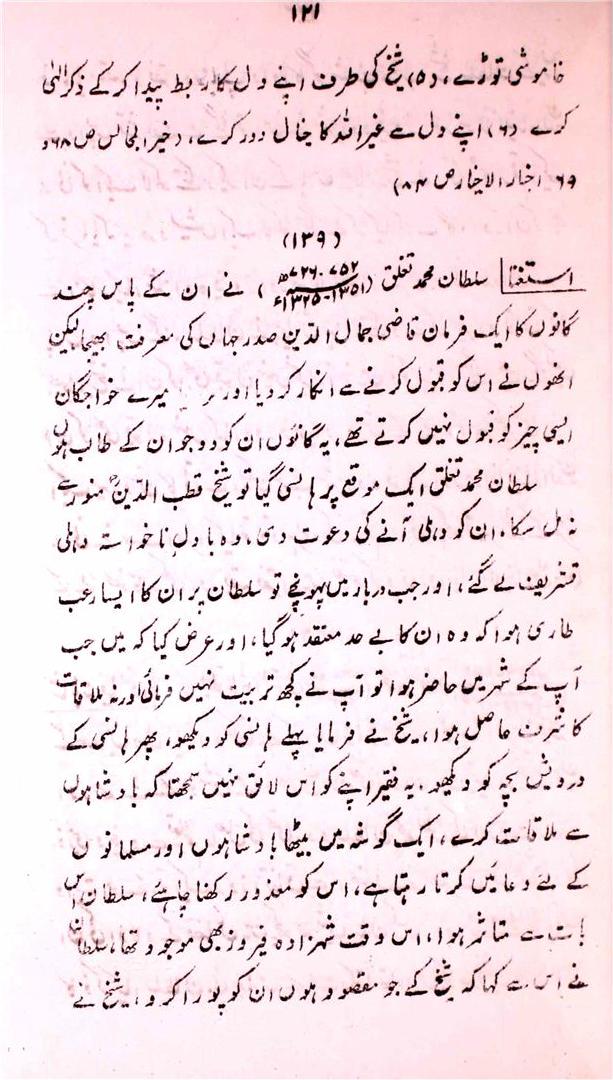 ۱۲۱
خاموشی توڑے، (۵) شیخ کی طرف اپنے دل کا ربط پیدا کرکے ذکر الٰہی
کرے (۶) اپنے دل سے غیر اللہ کا خیال دور کرے، (خیر المجالس ص ۶۸ و
۶۹ اخبار الاخیار ص ۸۴)
(۱۳۹)
استغنا سلطان محمد تغلق (۷۵۲-۷۲۶ھ ۱۳۵۱-۱۳۲۵ء) نے ان کے پاس چند
گانوں کا ایک فرمان قاضی جمال الدین صدر جہاں کی معرفت بھیجا لیکن
انھوں نے اس کو قبول کرنے سے انکار کر دیا اور میرے خواجگان
ایسی چیز کو قبول نہیں کرتے تھے، یہ گانوں ان کو دو جو ان کے طالب ہوں
سلطان محمد تغلق ایک موقع پر ہانسی گیا تو شیخ قطب الدین منورؒ سے
نہ مل سکا، ان کو دہلی آنے کی دعوت دی، وہ بادل ناخواستہ دہلی
تشریف لے گئے، اور جب دربار میں پہونچے تو سلطان پر ان کا ایسا رعب
طاری ہوا کہ وہ ان کا بے حد معتقد ہو گیا، اور عرض کیا کہ میں جب
آپ کے شہر میں حاضر ہوا تو آپ نے کچھ تربیت نہیں فرمائی اور نہ ملاقات
کا شرف حاصل ہوا، شیخ نے فرمایا پہلے ہانسی کو دیکھو، پھر ہانسی کے
درویش بچہ کو دیکھو، یہ فقیر اپنے کو اس لائق نہیں سمجھتا کہ بادشاہوں
سے ملاقات کرے، ایک گوشہ میں بیٹھا بادشاہوں اور مسلمانوں
کے لئے دعائیں کرتا رہتا ہے، اس کو معذور رکھنا چاہئے، سلطان اس
بات سے متاثر ہوا، اس وقت شہزادہ فیروز بھی موجود تھا، سلطان
نے اس سے کہا کہ شیخ کے جو مقصود ہوں ان کو پورا کرو، شیخ نے